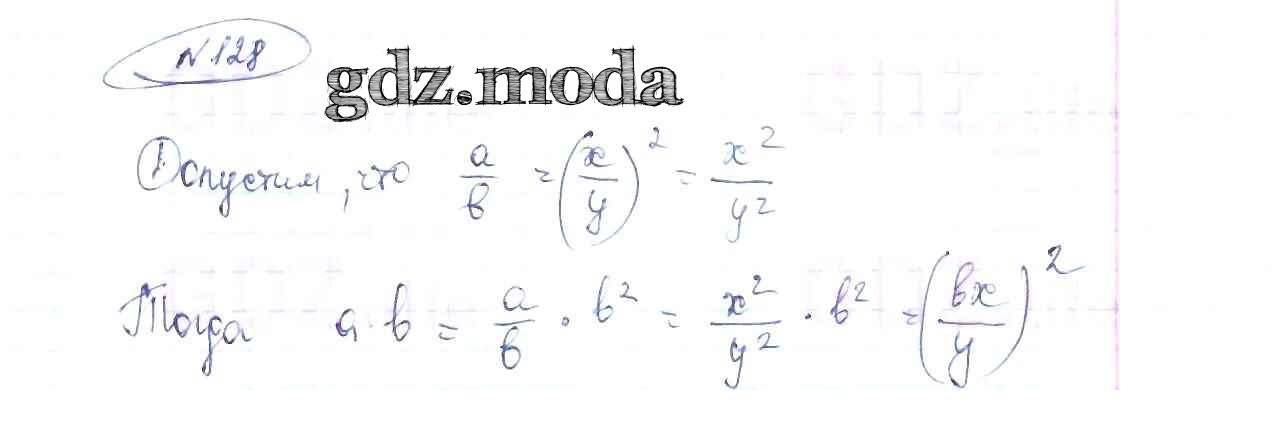 №128
gdz.moda
Допустим, что a/b = (x/y)² = x²/y²
Тогда a·b = a/b · b² = x²/y² · b² = (bx/y)²